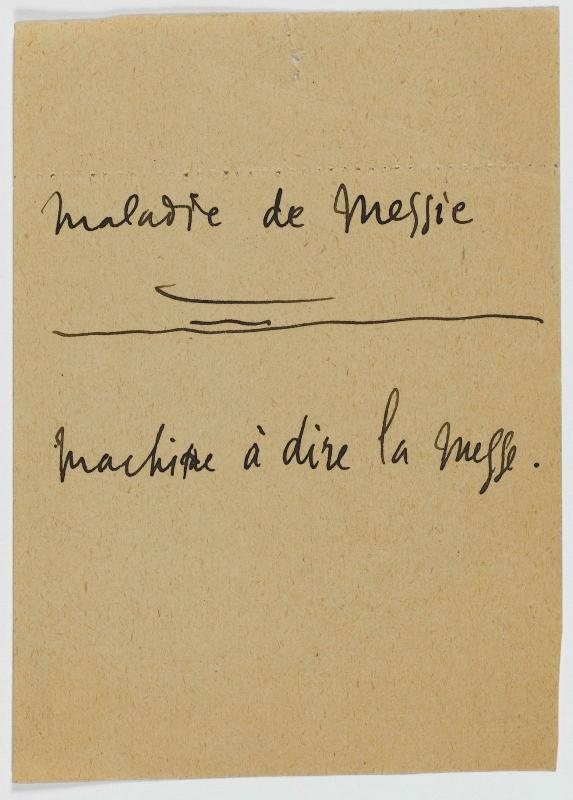 Maladie de Messie
Machine à dire la Messe.